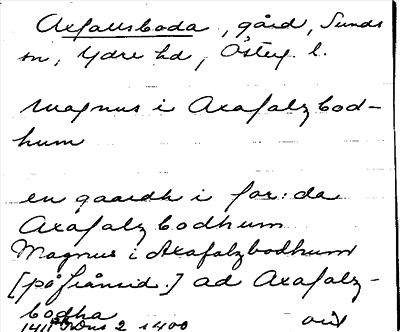 Axfallsboda, gård, Sunds
sn, Ydre hd, Österg. l.
Magnus i Axafalzbod-
hum
en gaardh i for:da
Axafalzbodhum
Magnus i Axafalzbodhum
[på frånsid.] ad Axafalz-
bodha
1411 2 1400 avid